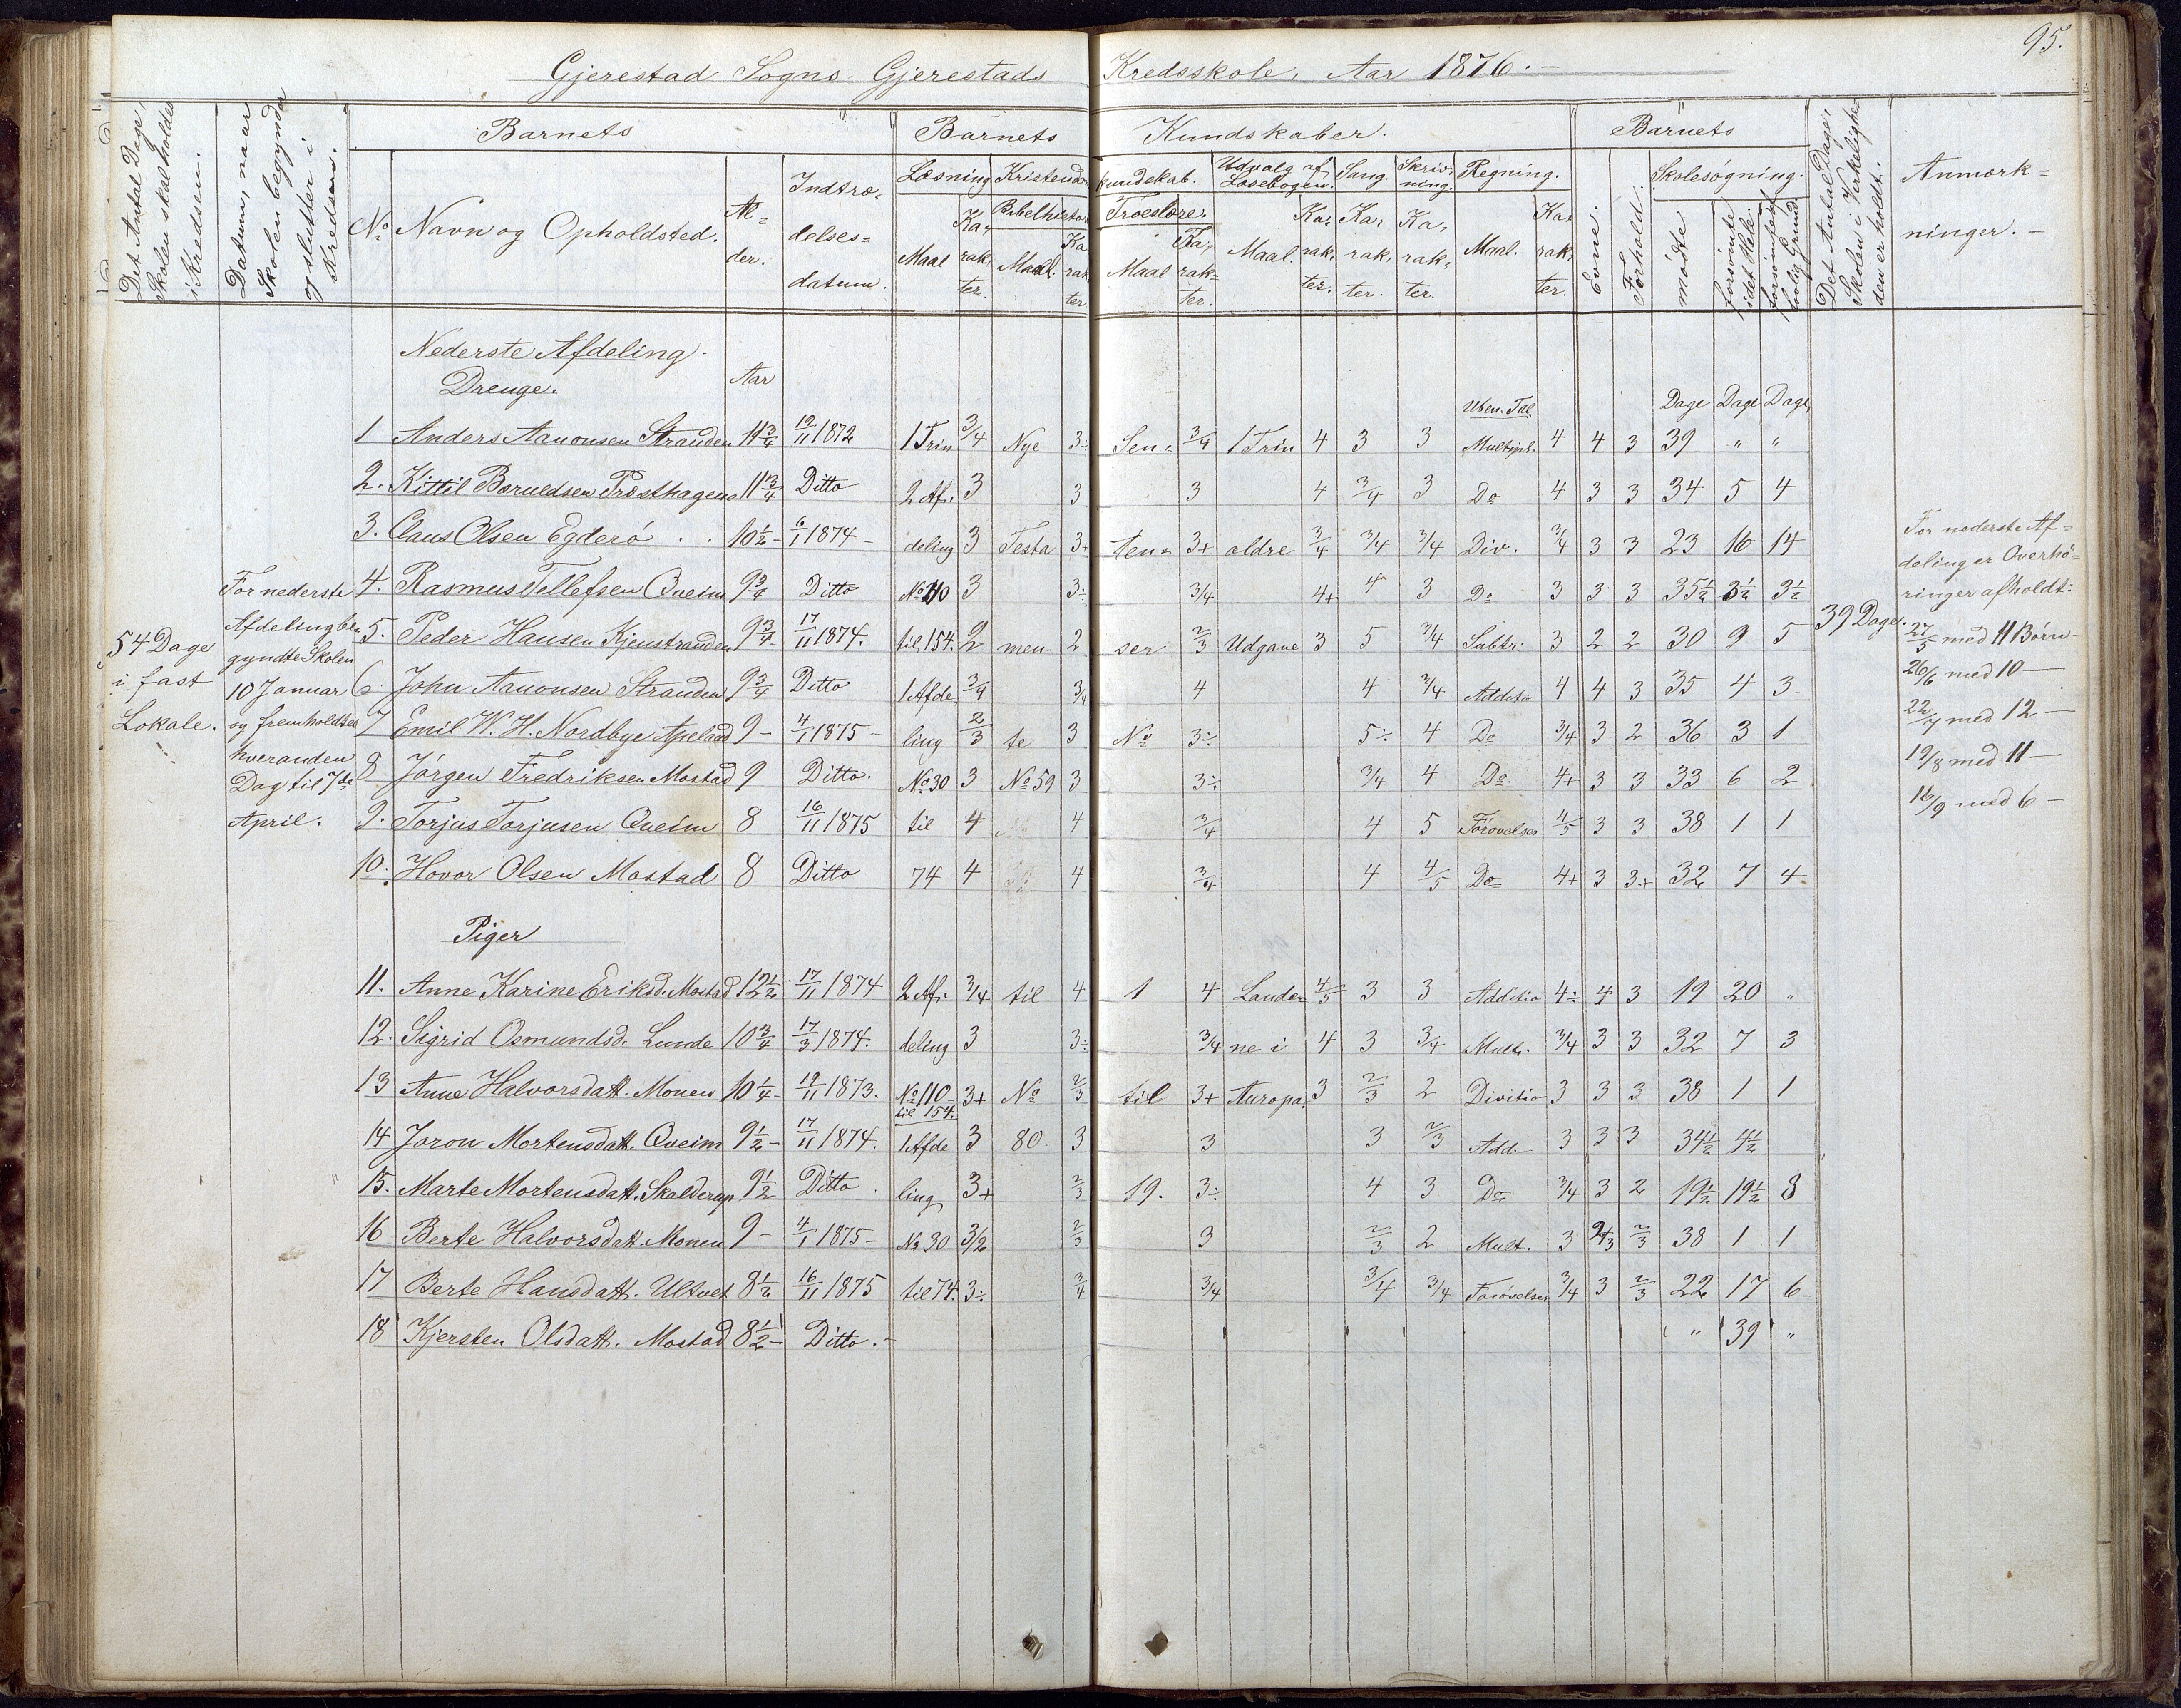 95.
Gjerestad Sogns Gjerestads Kredsskole, Aar 1876.
Det Antal Dage, Skolen skal holdes i Kredsen.
Datum, naar Skolen begynder og slutter i Kredsen.
Barnets
No Navn og Opholdsted. Al=der. Indtræ=delses=datum.
Barnets Kundskaber.
Læsning Kristendomskundskab. Udvalg af Læsebogen. Sang. Skrivning. Regning.
Bibelhistorie Troeslære.
Maal Karakter. Maal. Karakter. Maal Karakter. Maal. Karakter. Karakter. Karakter. Maal. Karakter.
Barnets
Evne. Forhold. Skolesøgning.
mødte forsømte i det Hele. forsømte af lovlig Grund
Det Antal Dage, Skolen i Virkeligheden er holdt.
Anmærkninger.
Nederste Afdeling.
Drenge. Aar
Uben. Tal. Dage Dage Dage
1 Anders Aanonsen Stranden 11 3/4 12/11 1872 1 Trin 3/4 Nye 3÷ Sen= 3/4 1 Trin 4 3 3 Multipl. 4 4 3 39 " "
2. Kittil Bæruldsen Præsthagen 11 3/4 Ditto 2 Af= 3 3 3 4 3/4 3 Do 4 3 3 34 5 4
3. Claus Olsen Egderø 10 1/2 6/1 1874 deling 3 Testa 3+ ten= 3+ ældre 3/4 3/4 3/4 Div. 3/4 3 3 23 16 14
4. Rasmus Tellefsen Qveim 9 3/4 Ditto No 110 3 3÷ 3/4 4+ 4 3 Do 3 3 3 35 1/2 3 1/2 3 1/2
5. Peder Hansen Kjenstranden 9 3/4 17/11 1874. til 154. 2 men 2 ser 2/3 Udgave 3 5 3/4 Subtr. 3 2 2 30 9 5
6. John Aanonsen Stranden 9 3/4 Ditto 1 Afde 3/4 3/4 4 4 3/4 Additio 4 4 3 35 4 3
7 Emil W. H. Nordbye Apelad 9 4/1 1875 ling 2/3 te 3 No 3÷ 5÷ 4 Do 3/4 3 2 36 3 1
8 Jørgen Fredriksen Mostad 9 Ditto. No 30 3 No 59 3 3÷ 3/4 4 Do 4+ 3 3 33 6 2
9. Torjus Torjusen Qveim 8 16/11 1875 til 4 4 3/4 4 5 Forøvelser 4/5 3 3 38 1 1
10. Hovor Olsen Mostad 8 Ditto 74 4 4 3/4 4 4/5 Do 4+ 3 3+ 32 7 4
Piger
11. Anne Karine Eriksd. Mostad 12 1/2 17/11 1874 2 Af= 3/4 til 4 1 4 Lande= 4/5 3 3 Additio 4÷ 4 3 19 20 "
12. Sigrid Osmundsd. Lunde 10 3/4 17/3 1874. deling 3 3÷ 3/4 ne i 4 3 3/4 Mult. 3/4 3 3 32 7 3
13 Anne Halvorsdatt. Monen 10 1/4 12/11 1873. No 110 til 154. 3+ No 2/3 til 3+ Auropa. 3 2/3 2 Divitio 3 3 3 38 1 1
14 Joron Mortensdatt. Qveim 9 1/2 17/11 1874. 1 Afde 3 80 3 3 3 2/3 Add. 3 3 3 34 1/2 4 1/2
15. Marte Mortensdatt. Skalderup 9 1/2 Ditto ling 3+ 2/3 19. 3÷ 4 3 Do 3/4 3 2 19 1/2 19 1/2 8
16 Berte Halvorsdatt. Monen 9 4/1 1875 No 30 3/2 2/3 3 2/3 2 Mult. 3 2/3 2/3 38 1 1
17 Berte Hansdatt. Ultvet 8 1/2 16/11 1875 til 74. 3÷ 3/4 3/4 3/4 3/4 Forøvelser 3/4 3 2/3 22 17 6
18 Kjersten Olsdatt. Mostad 8 1/2 Ditto. " 39 "
54 Dage
i fast
Lokale.
For nederste
Afdeling be=
gyndte Skolen
10 Januar
og fremholdtes
hveranden
Dag til 7de
April.
39 Dage.
For nederste Af=
deling er Overhø=
ringer afholdt:
27/5 med 11 Børn
26/6 med 10
22/7 med 12
19/8 med 11
16/9 med 6